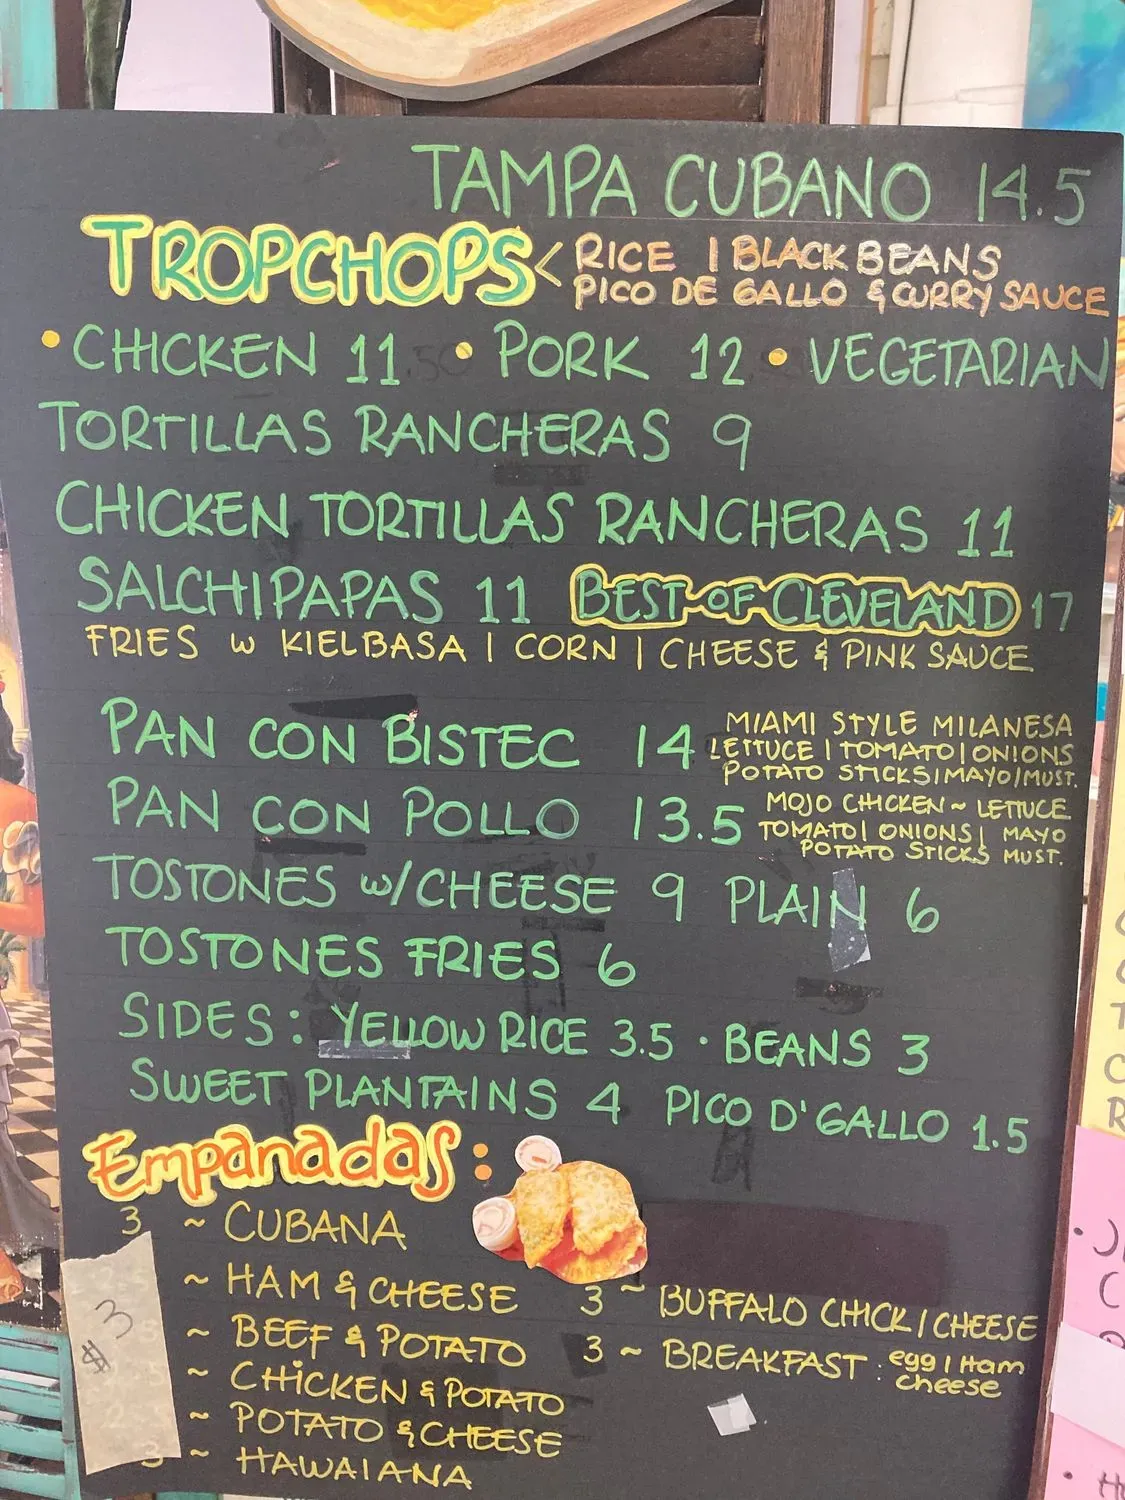 TAMPA CUBANO 14.5
TROPCHOPS < RICE | BLACK BEANS
PICO DE GALLO & CURRY SAUCE
• CHICKEN 11 • PORK 12 • VEGETARIAN
TORTILLAS RANCHERAS 9
CHICKEN TORTILLAS RANCHERAS 11
SALCHIPAPAS 11 BEST OF CLEVELAND 17
FRIES w KIELBASA | CORN | CHEESE & PINK SAUCE
PAN CON BISTEC 14 MIAMI STYLE MILANESA
LETTUCE | TOMATO | ONIONS
POTATO STICKS | MAYO | MUST.
PAN CON POLLO 13.5 MOJO CHICKEN ~ LETTUCE
TOMATO | ONIONS | MAYO
POTATO STICKS MUST.
TOSTONES w/CHEESE 9 PLAIN 6
TOSTONES FRIES 6
SIDES: YELLOW RICE 3.5 · BEANS 3
SWEET PLANTAINS 4 PICO D'GALLO 1.5
Empanadas:
3 ~ CUBANA
~ HAM & CHEESE
$3 ~ BEEF & POTATO
~ CHICKEN & POTATO
~ POTATO & CHEESE
3 ~ HAWAIANA
3 ~ BUFFALO CHICK / CHEESE
3 ~ BREAKFAST: egg | Ham
Cheese